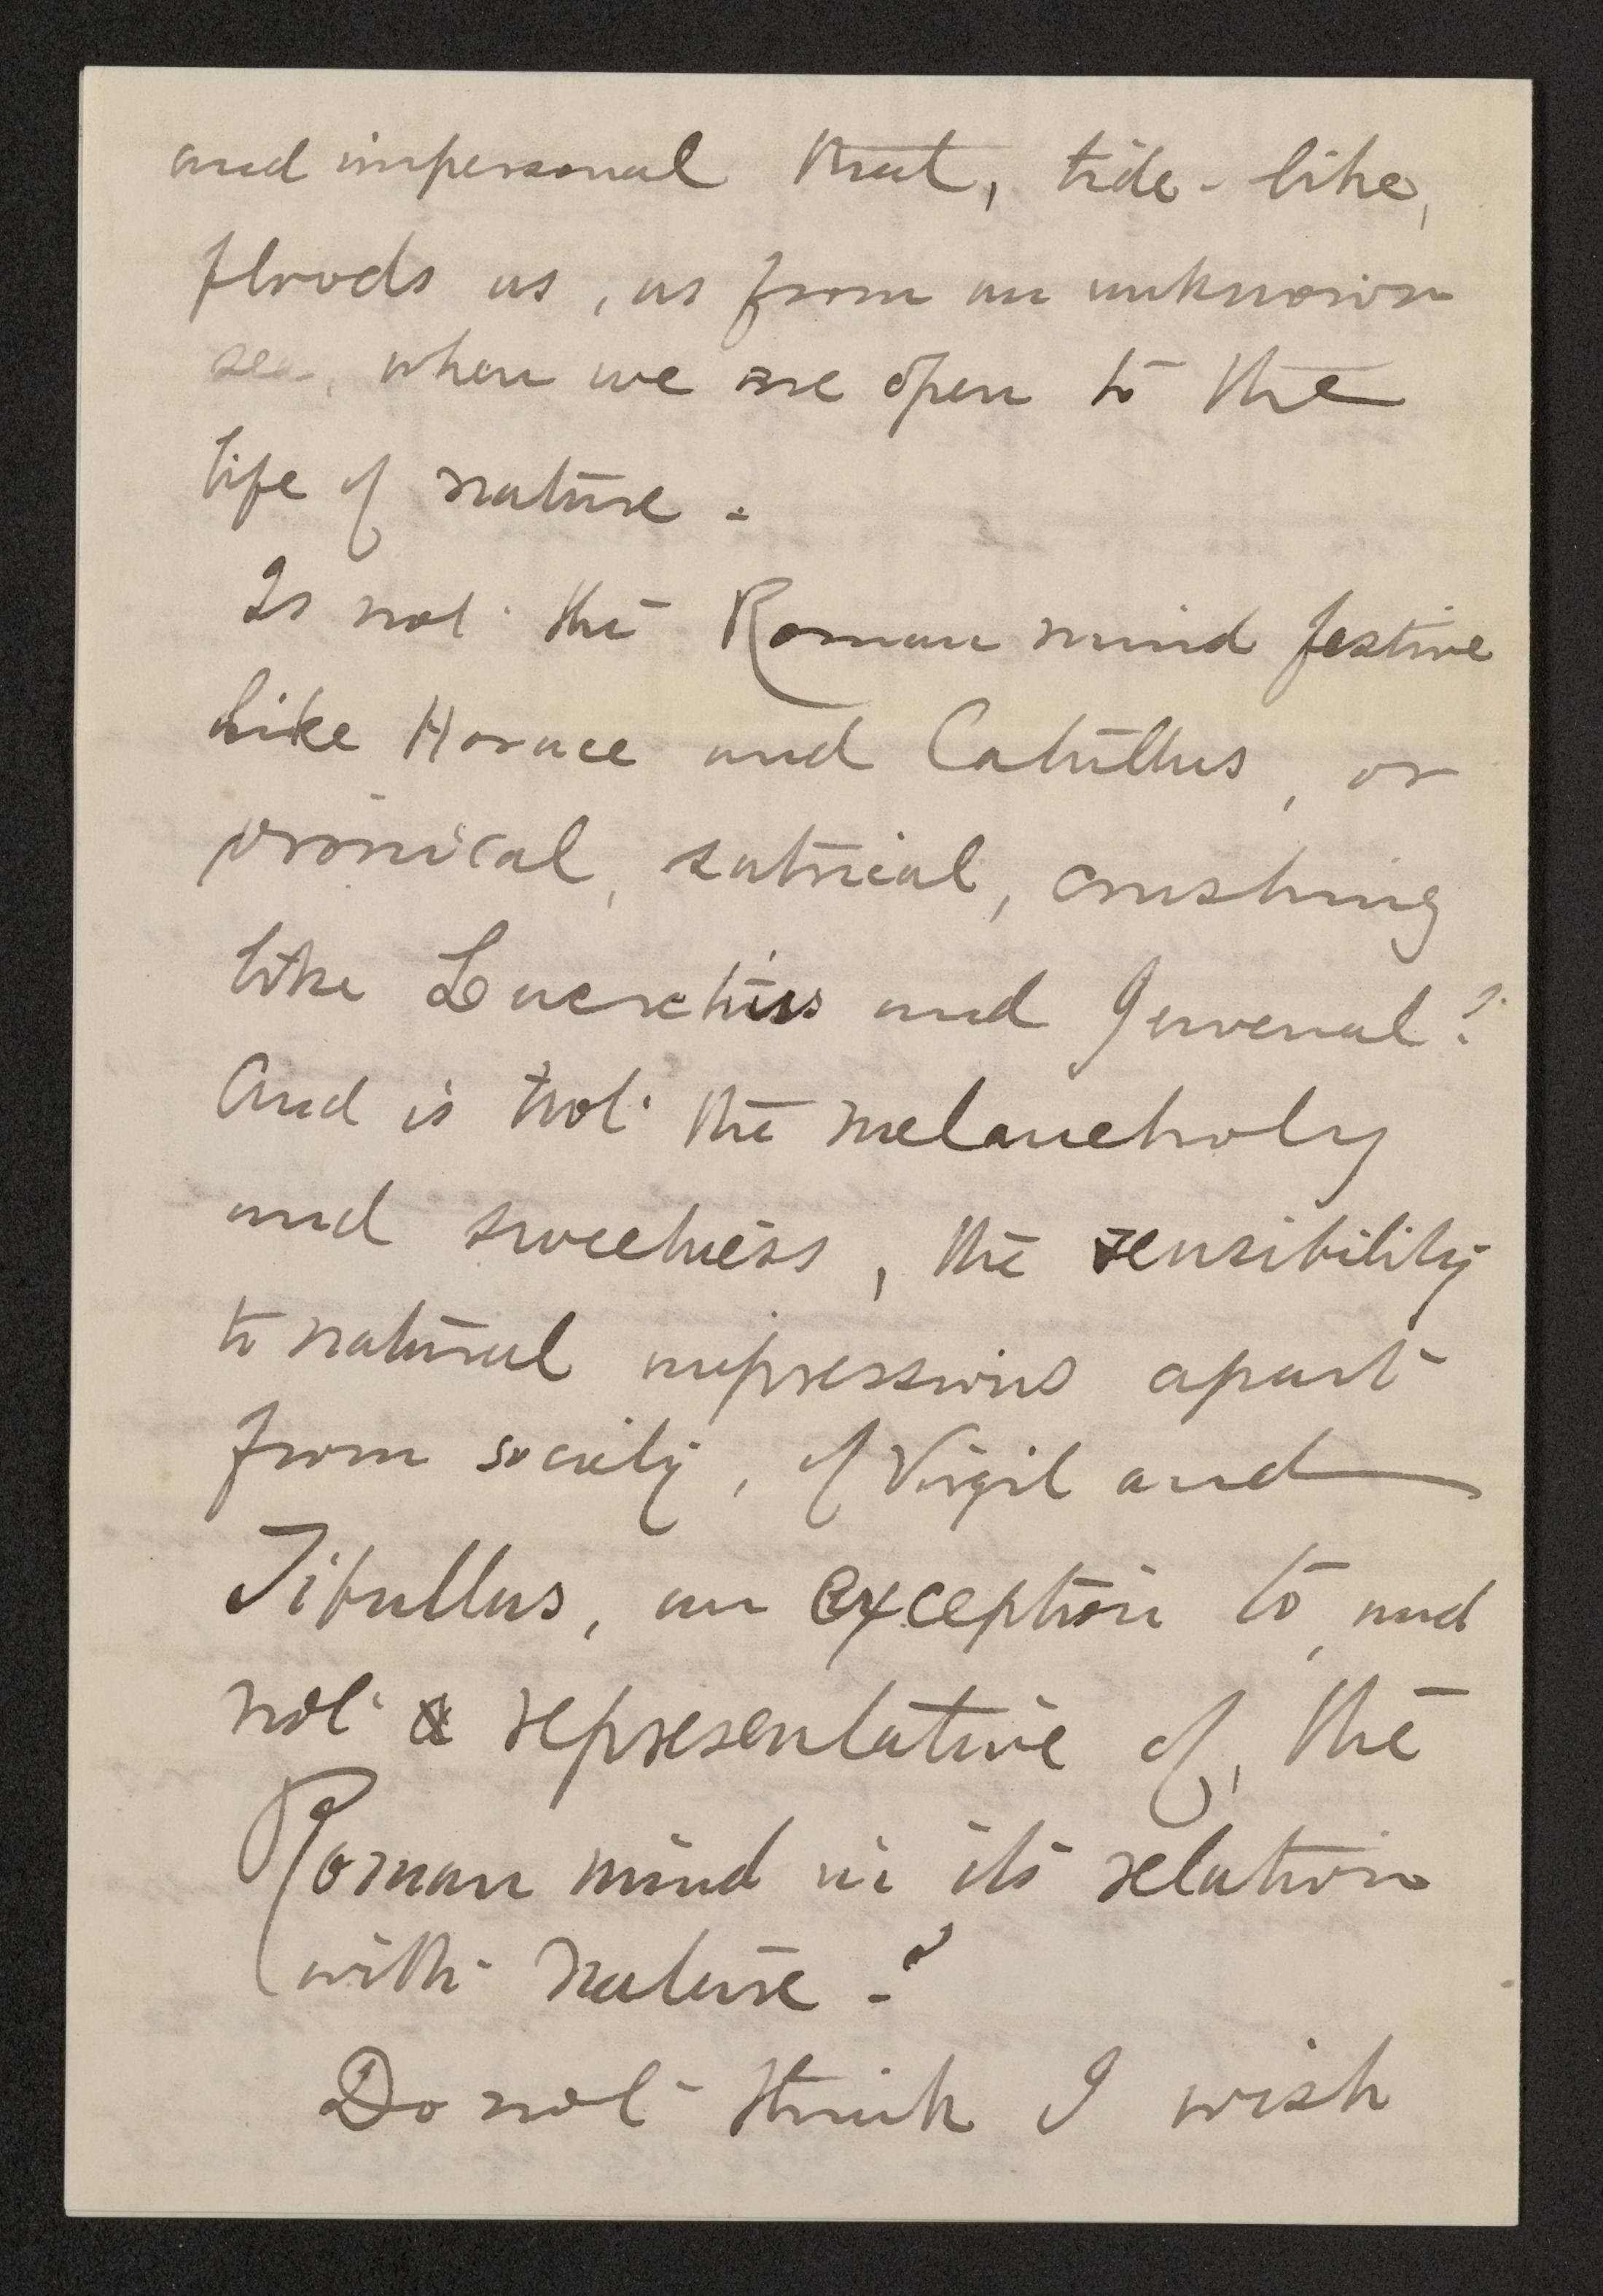 and impersonal that, tide-like,
floods us, as from an unknown
sea, when we are open to the
life of nature.
Is not the Roman mind festive
like Horace and Catullus, or
ironical, satirical, crushing
like Lucretius and Juvenal?
And is not the melancholy
and sweetness, the sensibility
to natural impressions apart
from society, of Virgil and
Tibullus, an exception to, and
not a representative of, the
Roman mind in its relation
with nature?
Do not think I wish